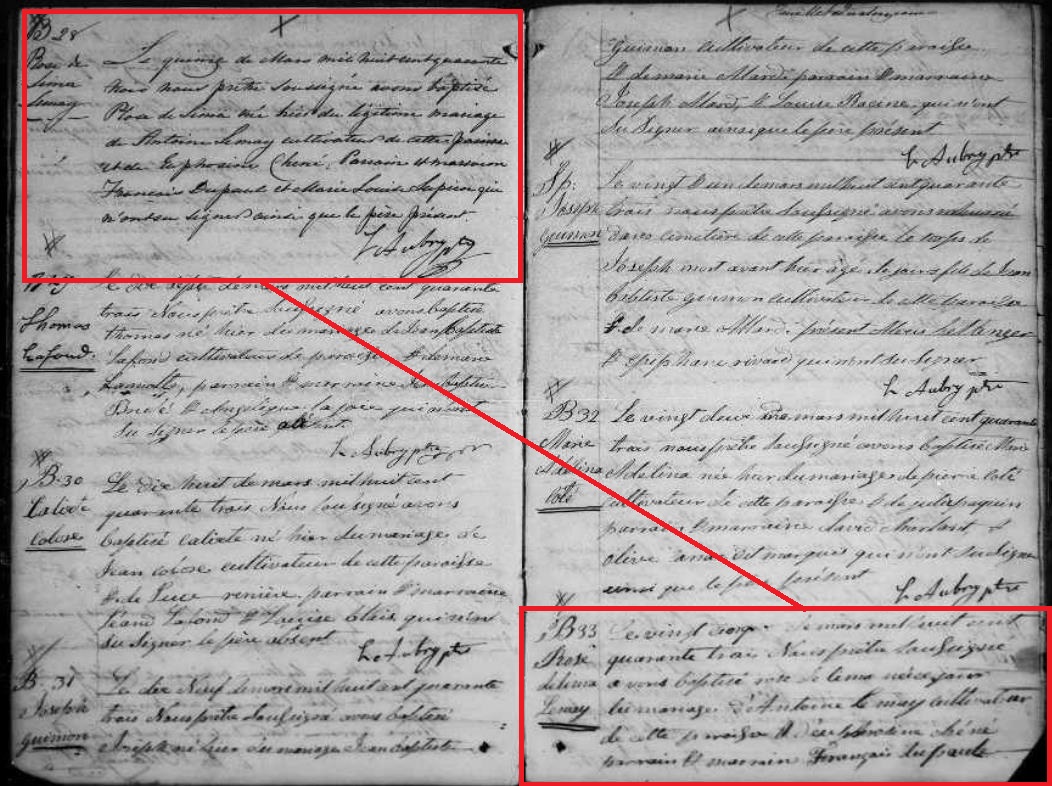 B 28
Rose de
Lima
Lemay
Le quinze de Mars mil huit cent quarante
trois nous prêtre soussigné avons baptisé
Rose de Lima née hier du légitime mariage
de Antoine Lemay cultivateur de cette paroisse
et de Euphrosine Chené. Parrain et marraine
François Dupaul et Marie Louise Lapierre qui
n'ont su signer ainsi que le père présent
L Aubry ptre
Thomas
Lafond.
Le dix sept de mars mil huit cent quarante
trois Nous prêtre Soussigné avons baptisé
thomas né hier du mariage de Jean Baptiste
Lafond cultivateur de paroisse & de marie
parrain & marraine Jean Baptiste
& Angelique La joie qui n'ont
su signer le père absent.
L. Aubry ptre
B. 30
Calixte
Colose
Le dix huit de mars mil huit cent
quarante trois Nous Soussigné avons
baptisé calixte né hier du mariage de
Jean colose cultivateur de cette paroisse
& de Luce parrain & marraine
Lafond & Louise Blais qui n'ont
su signer le père absent
L. Aubry ptre
B. 31
Joseph
guimon
Le dix Neuf de mars mil huit cent quarante
trois Nous prêtre Soussigné avons baptisé
Joseph né hier du mariage Jean Baptiste
Guimon cultivateur de cette paroisse
& de marie Allard parrain & marraine
Joseph Allard, & Louise Racine qui n'ont
su signer ainsi que le père présent
L. Aubry ptre
Sp:
Joseph
Guimon
Le vingt & un de mars mil huit cent quarante
trois nous prêtre Soussigné avons inhumé
dans cimetière de cette paroisse le corps de
Joseph mort avant hier agé de jours fils de Jean
Baptiste guimon cultivateur de cette paroisse
& de marie Allard. présent Alexis bellenger
& Epiphane rivard qui n'ont su signer
L. Aubry ptre
B 32
Marie
Adelina
Coté
Le vingt deux de mars mil huit cent quarante
trois nous prêtre Soussigné avons baptisé Marie
Adelina née hier du mariage de pierre Coté
cultivateur de cette paroisse & de julie paquin
parrain & marraine david chartant &
olive dit marquis qui n'ont su signer
ainsi que le père présent
L. Aubry ptre
B 33
Rose
de lima
Lemay
Le vingt de mars mil huit cent
quarante trois Nous prêtre Soussigné
avons baptisé rose de lima née ce jour
du mariage d'Antoine le may cultivateur
de cette paroisse & d'euphrosine chéné
parrain & marraine François dupaule